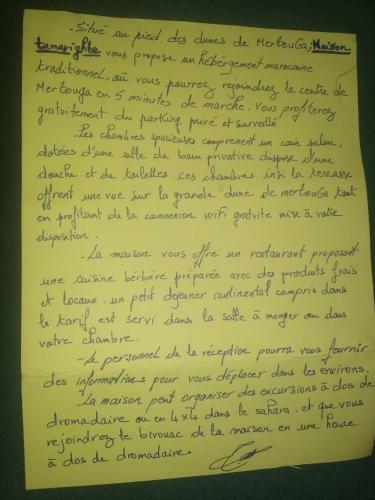 -Situé au pied des dunes de MertouGa, Maison
tamarighte vous propose un hébergement marocaine
traditionnel, où vous pourrez rejoindrez le centre de
Mertouga en 5 minutes de marche. Vous profiterez
gratuitement du parking privé et surveillé
-Les chambres spacieuses comprennent un coin salon,
dotées d'une salle de bain privative dispose d'une
douche et de toilettes. ces chambres insi la terrasse
offrent une vue sur la grande dune de mertouga tout
en profitant de la connexion wifi gratuite mise à votre
disposition.
-La maison vous offre un restaurant proposant
une cuisine bérbère préparée avec des produits frais
et locaux. un petit dejeuner continental compris dans
le tarif est servi dans la salle à manger ou dans
votre chambre.
-Le personnel de la réception pourra vous fournir
des informations pour vous déplacer dans les environs.
-La maison peut organiser des excursions à dos de
dromadaire ou en 4x4 dans le sahara. et que vous
rejoindrez le bivouac de la maison en une heure
à dos de dromadaire.